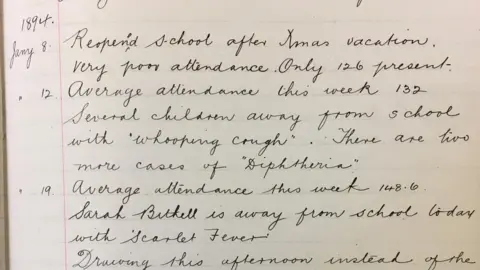 1894.
Jany 8. Reopen'd School after Xmas vacation.
Very poor attendance. Only 126 present.
" 12. Average attendance this week 132
Several children away from school
with "whooping cough". There are two
more cases of "Diphtheria"
" 19. Average attendance this week 148.6.
Sarah is away from school today
with 'Scarlet Fever'
Drawing this afternoon instead of the